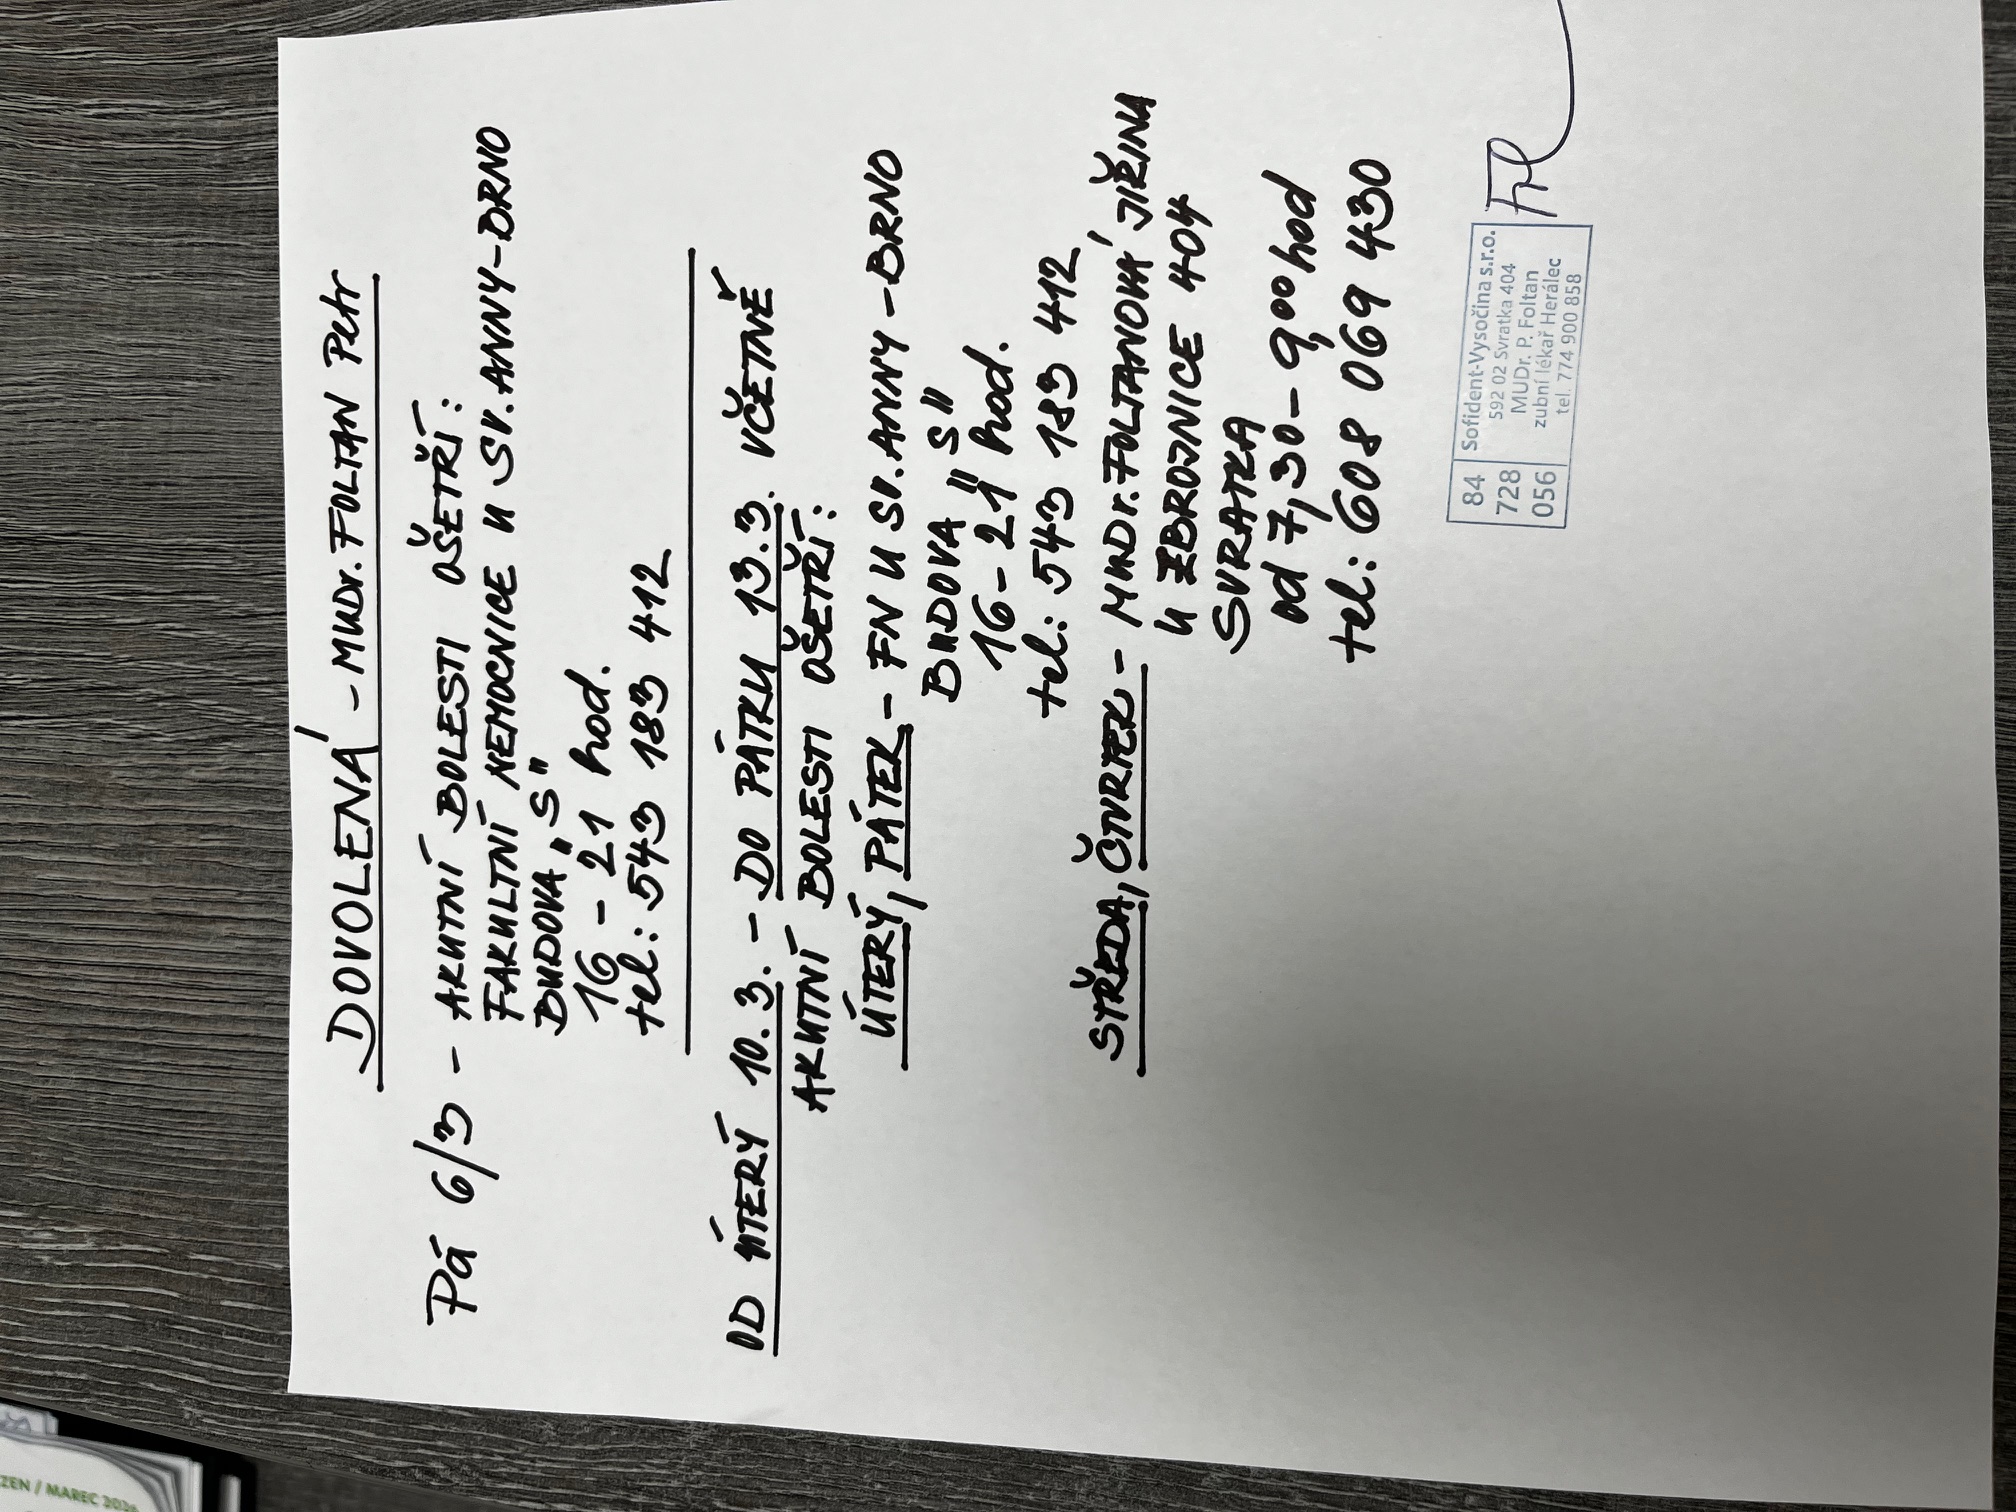 DOVOLENÁ - MUDr. FOLTAN Petr
Pá 6/3 - AKUTNÍ BOLESTI OŠETŘÍ:
FAKULTNÍ NEMOCNICE U SV. ANNY-BRNO
BUDOVA „S"
16 - 21 hod.
tel.: 543 183 412
OD ÚTERÝ 10.3. - DO PÁTKU 13.3. VČETNĚ
AKUTNÍ BOLESTI OŠETŘÍ:
ÚTERÝ, PÁTEK - FN U SV. ANNY - BRNO
BUDOVA „S"
16 - 21 hod.
tel: 543 183 412
STŘEDA, ČTVRTEK - MUDr. FOLTANOVÁ JIŘINA
U ZBROJNICE 404
SVRATKA
od 7,30 - 9,00 hod
tel.: 608 069 430
84 728 056
Sofident-Vysočina s.r.o.
592 02 Svratka 404
MUDr. P. Foltan
zubní lékař Herálec
tel. 774 900 858
ZEN / MAREC 2026